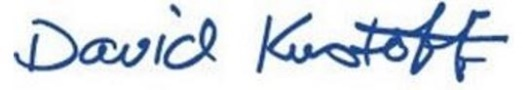 David Kustoff